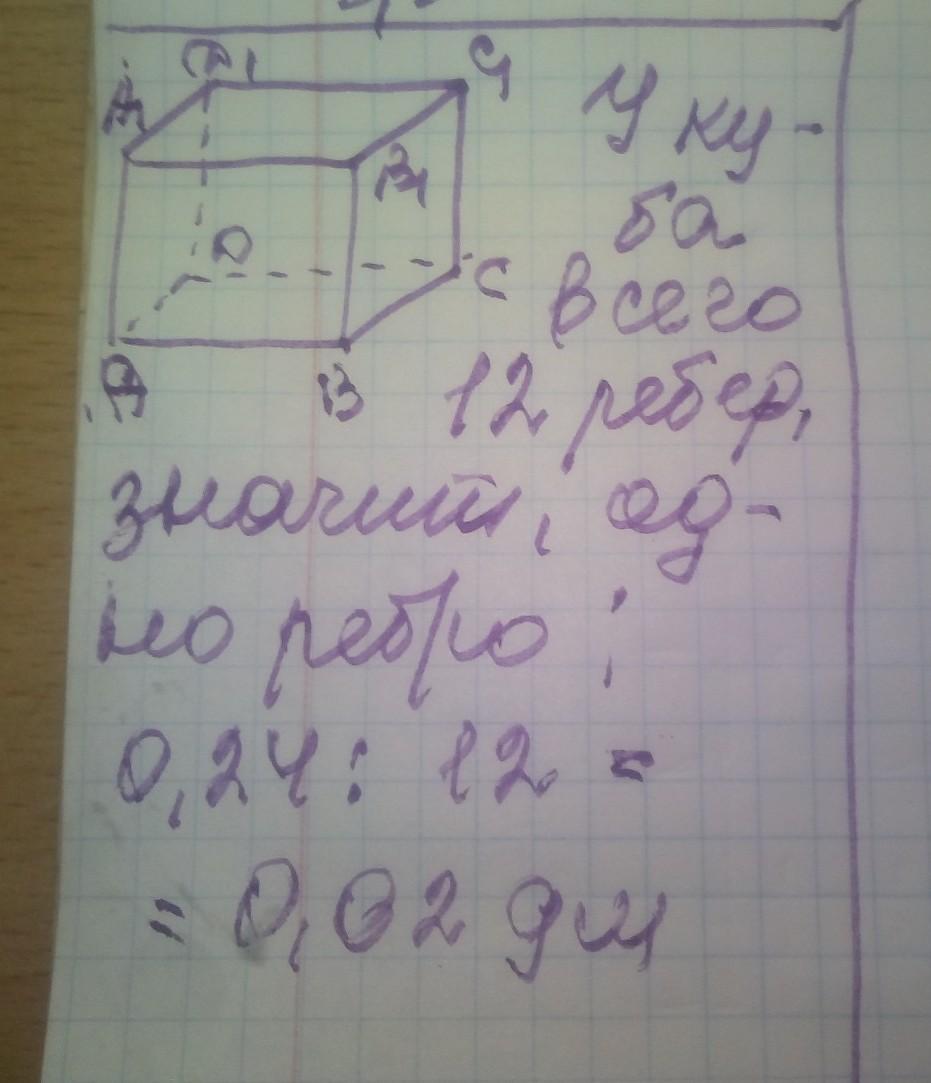 D1 C1
A1 B1
D C
A B
У ку-
ба
всего
12 ребер,
значит, од-
но ребро:
0,24 : 12 =
= 0,02 дм